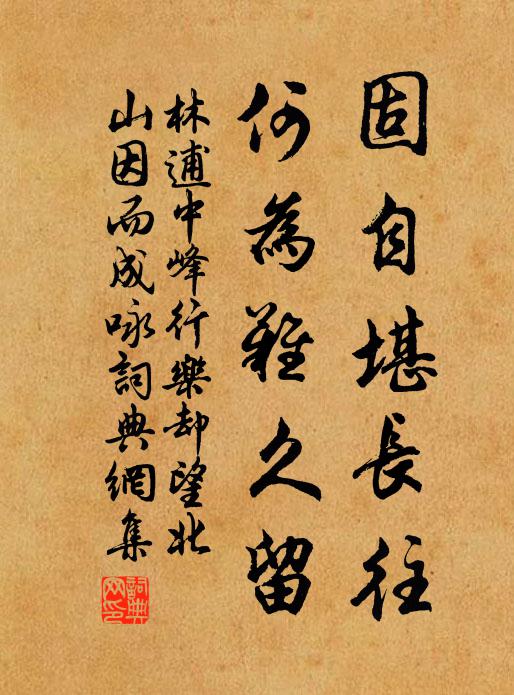 固自堪長往
何為難久留
林逋中峰行樂却望北
山因而成咏詞典網集
詞典
网印